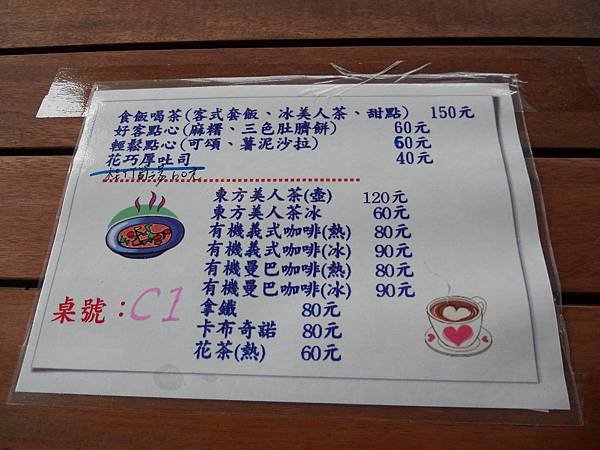 食飯喝茶(客式套飯、冰美人茶、甜點) 150元
好客點心(麻糬、三色肚臍餅) 60元
輕鬆點心(可頌、薯泥沙拉) 60元
花巧厚吐司 40元
60元
東方美人茶(壺) 120元
東方美人茶冰 60元
有機義式咖啡(熱) 80元
有機義式咖啡(冰) 90元
有機曼巴咖啡(熱) 80元
有機曼巴咖啡(冰) 90元
拿鐵 80元
卡布奇諾 80元
花茶(熱) 60元
桌號：C1